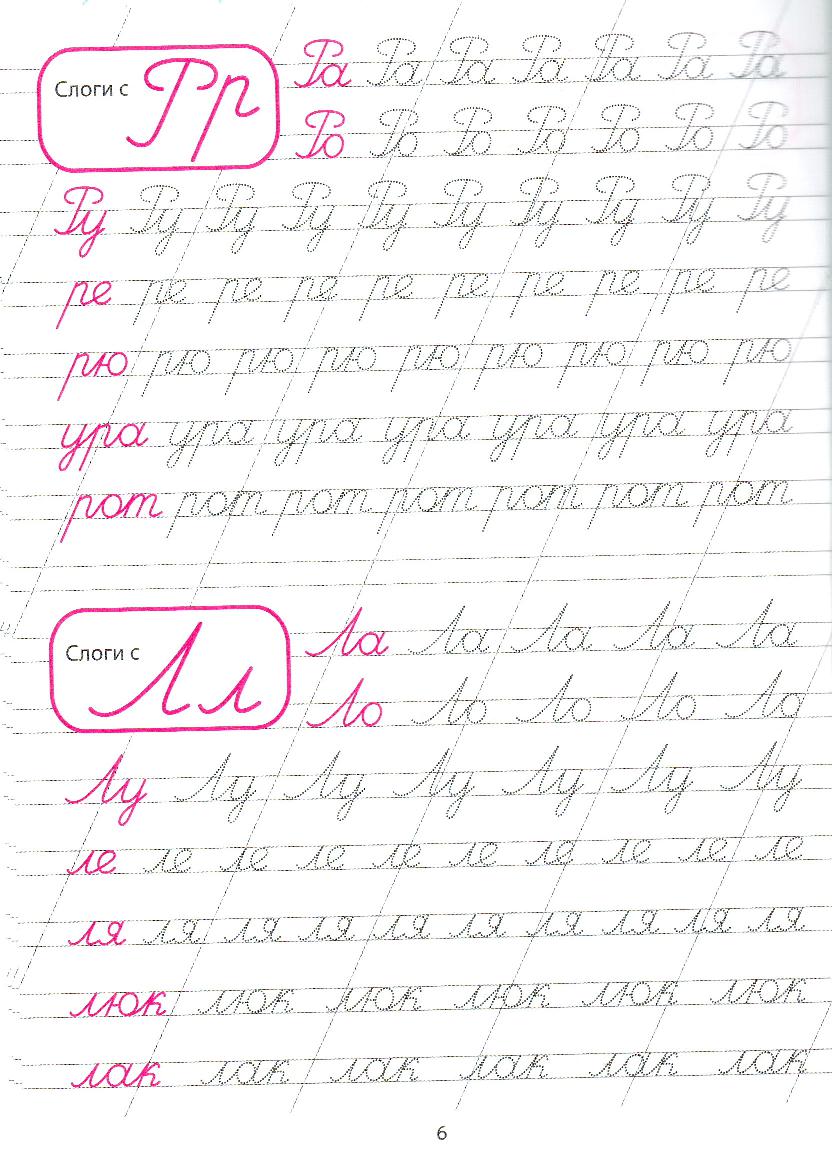 6
Слоги с Рр
Ра Ра Ра Ра Ра Ра Ра
Ро Ро Ро Ро Ро Ро Ро
Ру Ру Ру Ру Ру Ру Ру Ру Ру Ру
ре ре ре ре ре ре ре ре ре ре
рю рю рю рю рю рю рю рю рю
ура ура ура ура ура ура ура
рот рот рот рот рот рот рот
Слоги с Лл
Ла Ла Ла Ла Ла
Ло Ло Ло Ло Ло
Лу Лу Лу Лу Лу Лу Лу
ле ле ле ле ле ле ле ле ле ле
ля ля ля ля ля ля ля ля ля ля
люк люк люк люк люк люк
лак лак лак лак лак лак
6